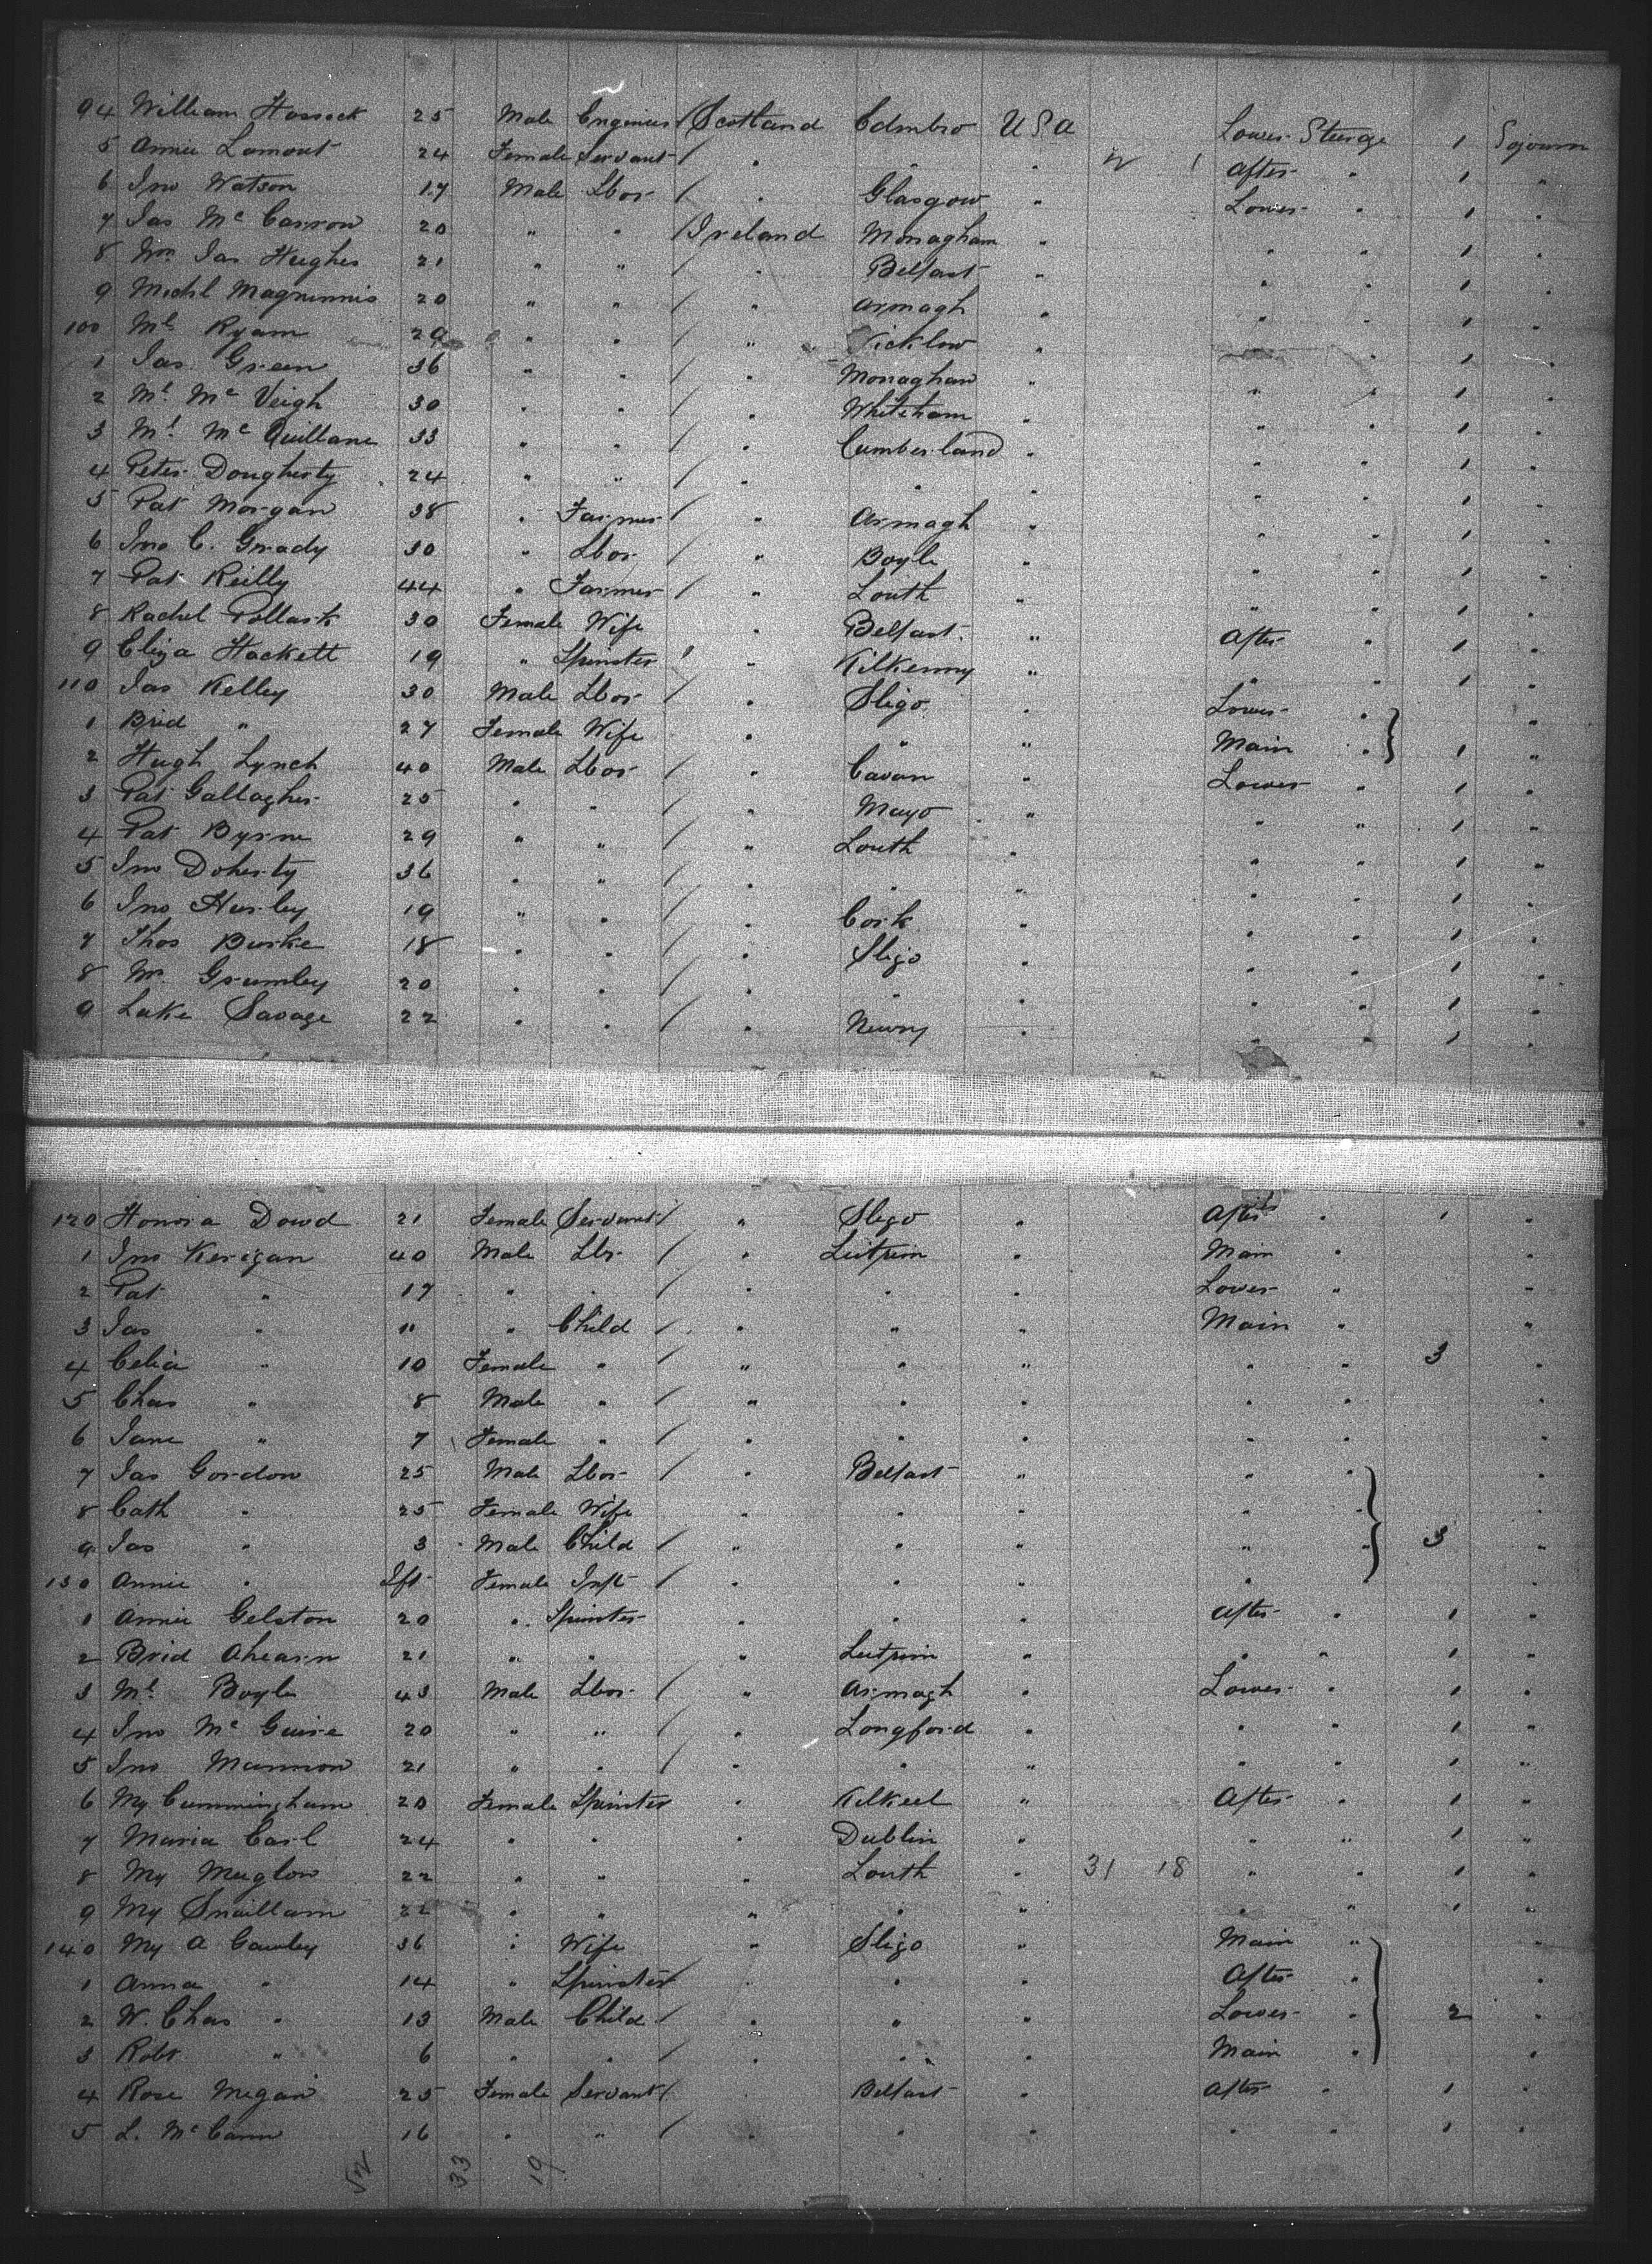 94 William Hossack 25 Male Engineer / Scotland Edinbro U S A Lower Steerge 1 Sojourn
5 Annie Lamont 24 Female Servant / " " " 2 1 After " 1 "
6 Jno Watson 17 Male Lbor / " Glasgow " Lower " 1 "
7 Jas Mc Carron 20 " " / Ireland Monaghan " " " 1 "
8 Wm Jas Hughes 21 " " / " Belfast " " " 1 "
9 Michl Maginnis 20 " " / " Armagh " " " 1 "
100 Ml Ryan 29 " " / " Wicklow " " 1 "
1 Jas Green 36 " " / " Monaghan " " " 1 "
2 Ml Mc Veigh 30 " " / " Whiteham " " " 1 "
3 Ml Mc Quillane 33 " " / " Cumberland " " " 1 "
4 Peter Dougherty 24 " " / " " " " " 1 "
5 Pat Morgan 38 " Farmer / " Armagh " " " 1 "
6 Jno C. Grady 30 " Lbor / " Boyle " " " 1 "
7 Pat Reilly 44 " Farmer / " Louth " " " 1 "
8 Rachel Pollack 30 Female Wife " Belfast " After " 1 "
9 Eliza Hackett 19 " Spinster / " Kilkenny " " " 1 "
110 Jas Kelley 30 Male Lbor / " Sligo " Lower " "
1 Brid " 27 Female Wife " " " Main " } 1 "
2 Hugh Lynch 40 Male Lbor / " Cavan " Lower " 1 "
3 Pat Gallagher 25 " " / " Mayo " " " 1 "
4 Pat Byrne 29 " " / " Louth " " " 1 "
5 Jno Doherty 36 " " / " " " " " 1 "
6 Jno Hurley 19 " " / " Cork " " " 1 "
7 Thos Burke 18 " " / " Sligo " " " 1 "
8 Wm Grumley 20 " " / " " " " " 1 "
9 Luke Savage 22 " " / " Newry " " " 1 "
120 Honora Dowd 21 Female Servant / " Sligo " After " 1 "
1 Jno Kerigan 40 Male Lbr / " Leitrim " Main " "
2 Pat " 17 " " / " " " Lower " "
3 Jas " 11 " Child / " " " Main " "
4 Celia " 10 Female " / " " " " " 3 "
5 Chas " 8 Male " / " " " " " "
6 Jane " 7 Female " / " " " " " "
7 Jas Gordon 25 Male Lbor / " Belfast " " "
8 Cath " 25 Female Wife " " " " " "
9 Jas " 3 Male Child / " " " " " } 3 "
130 Annie " Ift Female Inft / " " " " "
1 Annie Gelston 20 " Spinster " " " After " 1 "
2 Brid Ahearn 21 " " " Leitrim " " " 1 "
3 Ml Boyle 43 Male Lbor / " Armagh " Lower " 1 "
4 Jno Mc Guire 20 " " / " Longford " " " 1 "
5 Jno Mannion 21 " " / " " " " " 1 "
6 My Cunningham 20 Female Spinster " Kilkeel " After " 1 "
7 Maria Carl 24 " " " Dublin " " " 1 "
8 My Muglow 22 " " " Louth " 31 18 " " 1 "
9 My Smillam 22 " " " " " " " 1 "
140 My A Gawley 36 " Wife " Sligo " Main " "
1 Anna " 14 " Spinster " " " After " "
2 W. Chas " 13 Male Child / " " " Lower " } 2 "
3 Robt " 6 " " / " " " Main " "
4 Rose Megan 25 Female Servant / " Belfast " After " 1 "
5 L. Mc Cann 16 " " / " " " " " 1 "
52 33 19